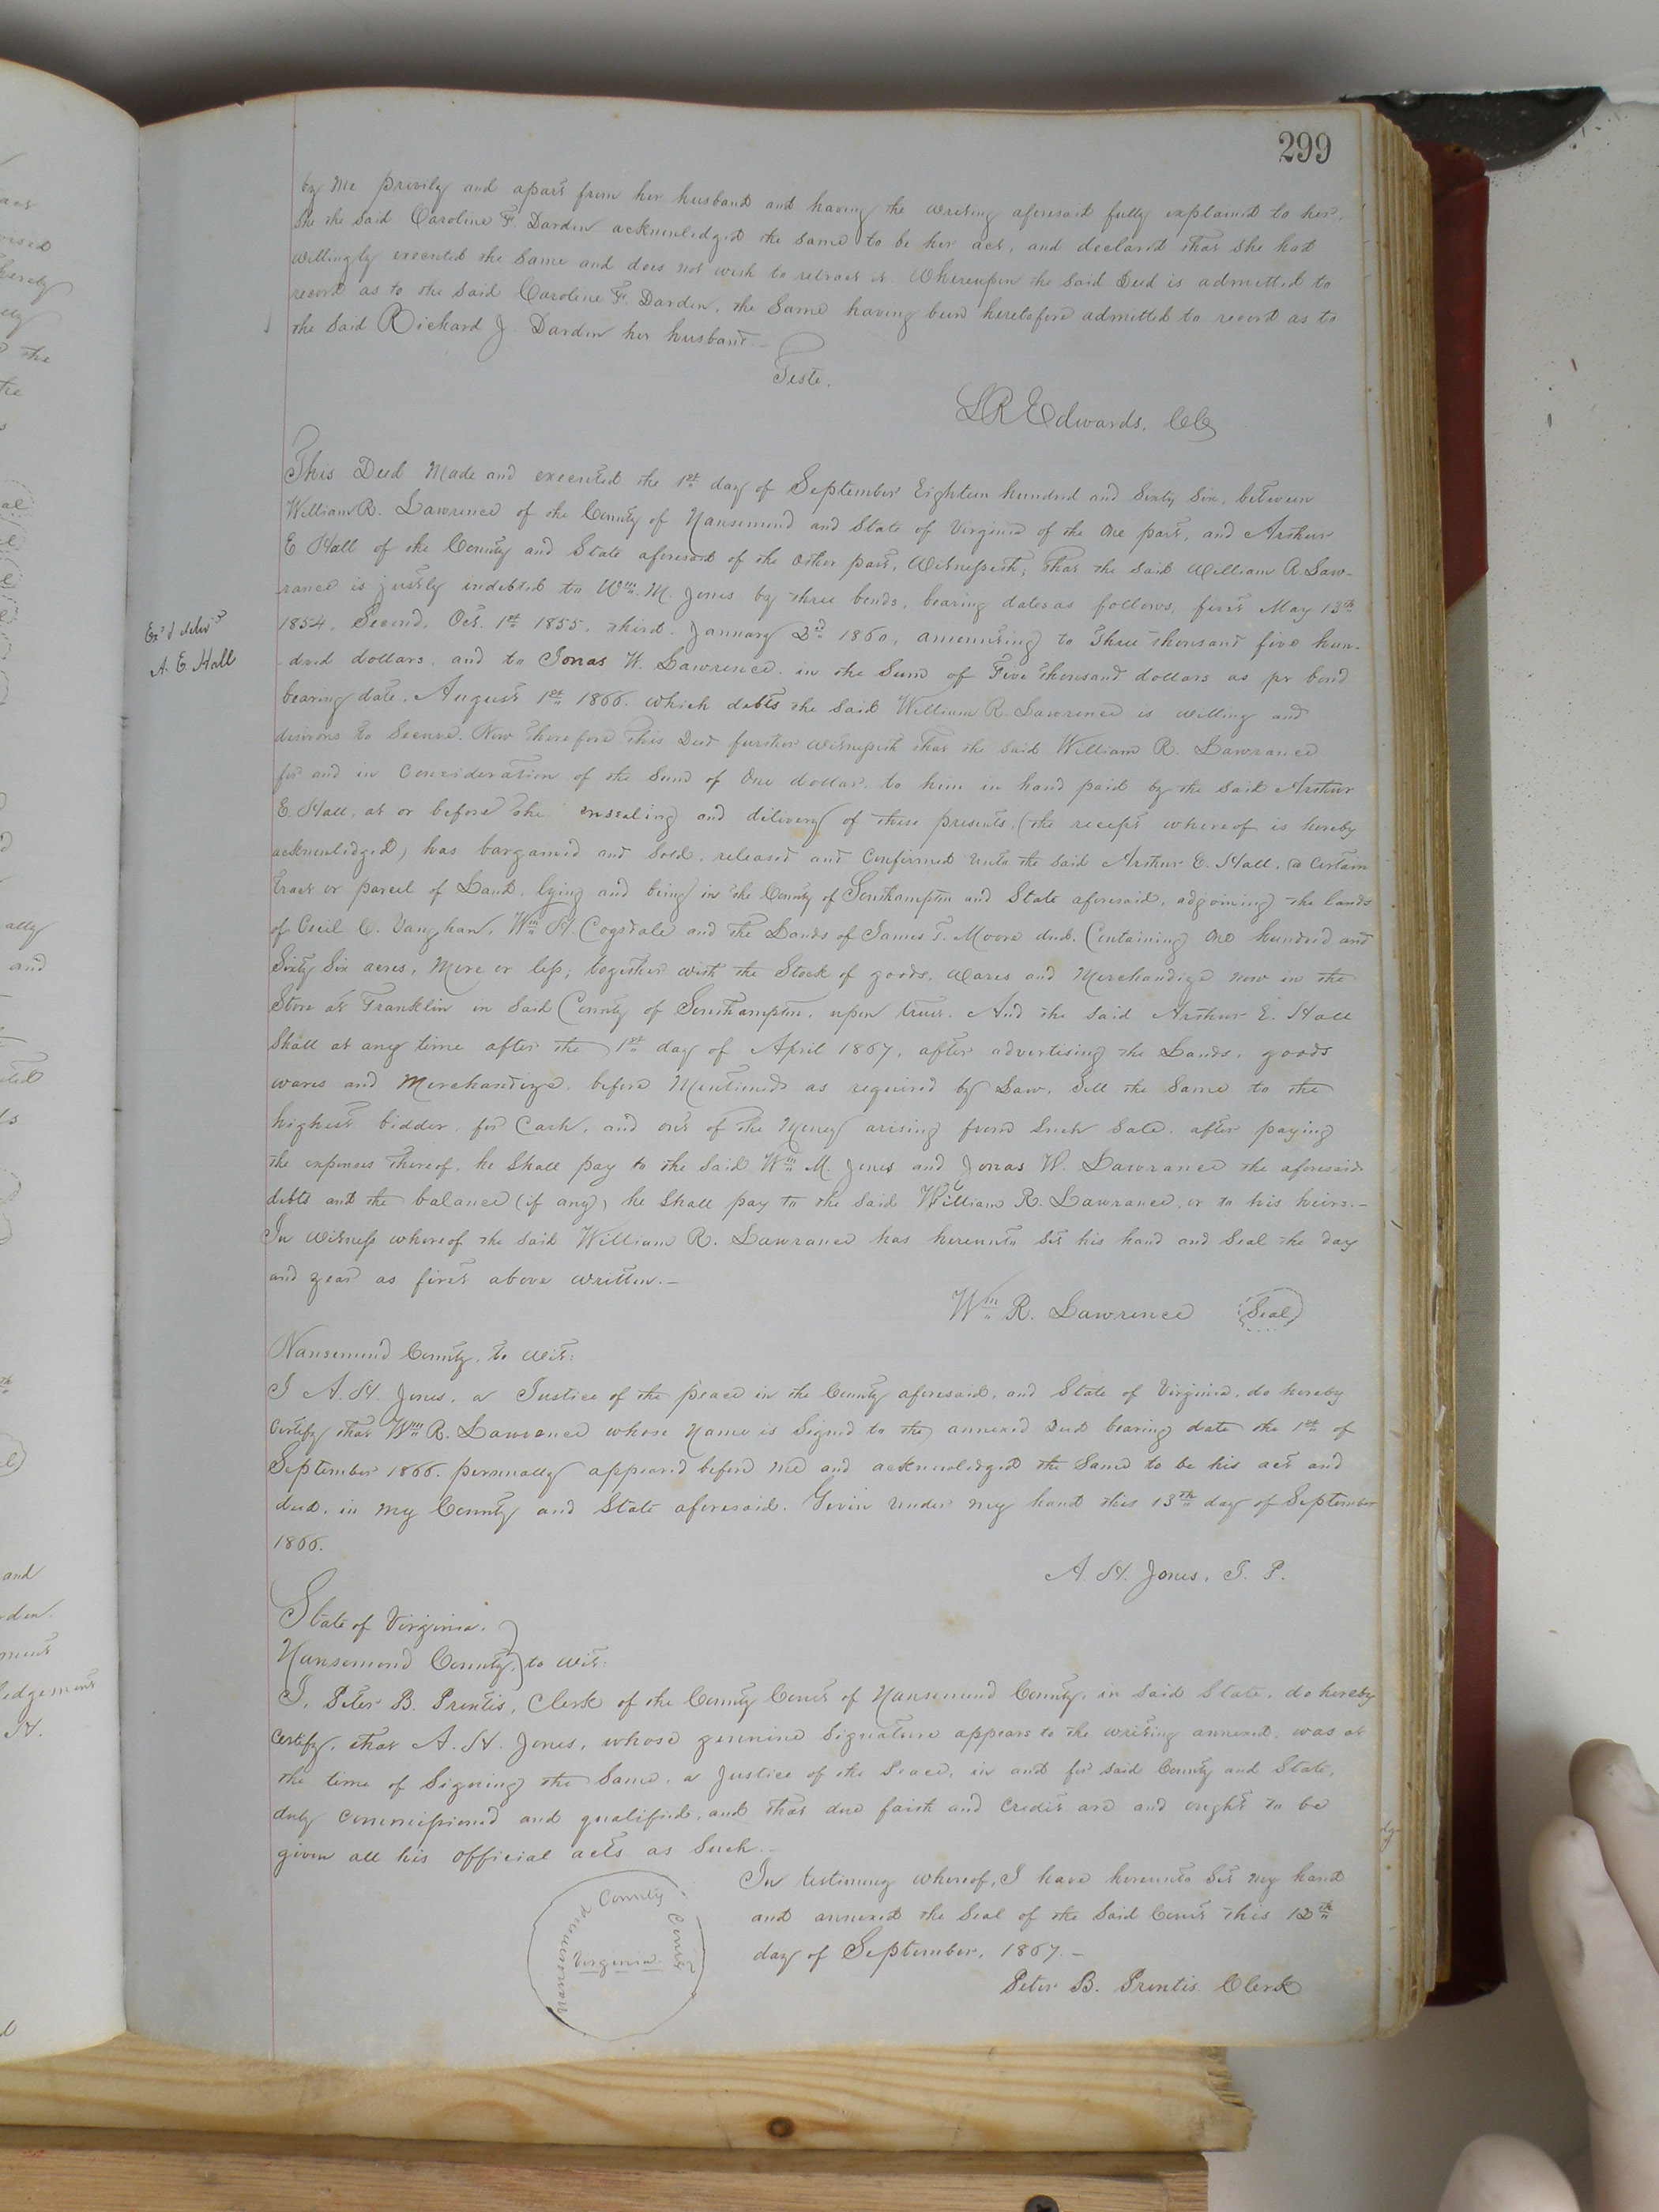 299
by me privily and apart from her husband and having the writing aforesaid fully explained to her,
she the said Caroline F. Darden acknowledged the same to be her act, and declared that she had
willingly executed the same and does not wish to retract it Whereupon the said Deed is admitted to
record as to the said Caroline F. Darden, the same having been heretofore admitted to record as to
the said Richard J. Darden her husband.—
Teste,
LREdwards, CC
This Deed Made and executed the 1st day of September Eighteen hundred and Sixty Six, between
William R. Lawrence of the County of Nansemond and State of Virginia of the one part, and Arthur
E Hall of the County and State aforesaid of the other part, Witnesseth; That the said William R Law-
rance is justly indebted to Wm. M. Jones by three bonds, bearing dates as follows, first May 13th
1854, Second, Oct. 1st 1855, third, January 2d 1860, amounting to Three thousand five hun-
dred dollars, and to Jonas W. Lawrence in the Sum of Five thousand dollars as pr bond
bearing date, August 1st 1866. which debts the said William R. Lawrence is willing and
desirous to Secure. Now Therefore This Deed further witnesseth that the said William R. Lawrance
for and in Consideration of the Sum of One dollar to him in hand paid by the said Arthur
E. Hall, at or before the ensealing and delivery of these presents, (the receipt whereof is hereby
acknowledged) has bargained and sold, released and Confirmed unto the said Arthur E. Hall, a Certain
tract or parcel of Land, lying and being in the County of Southampton and State aforesaid, adjoining the lands
of Cecil C. Vaughan, Wm H. Cogsdale and the Lands of James T. Moore decd. Containing One hundred and
Sixty Six acres, More or less; together with the Stock of goods, Wares and Merchandize now in the
Store at Franklin in said County of Southampton, upon trust. And the said Arthur E. Hall
Shall at any time after the 1st day of April 1867, after advertising the Lands, goods
wares and Merchandize, before Mentioned as required by Law, Sell the Same to the
highest bidder, for Cash, and out of the Money arising from such Sale, after paying
the expenses thereof, he shall pay to the said Wm M. Jones and Jonas W. Lawrance the aforesaid
debts and the balance (if any) he shall pay to the said William R. Lawrance, or to his heirs.—
In Witness whereof the said William R. Lawrance has hereunto set his hand and Seal the day
and year as first above written.—
Wm R. Lawrence Seal
Ex'd & delv'd
A. E. Hall
Nansemond County, to wit:
I A. H. Jones, a Justice of the peace in the County aforesaid, and State of Virginia, do hereby
Certify that Wm R. Lawrence whose Name is Signed to the annexed Deed bearing date the 1st of
September 1866. personally appeared before me and acknowledged the Same to be his act and
deed, in my County and State aforesaid. Given under my hand this 13th day of September
1866.
A. H. Jones, J. P.
State of Virginia.
Nansemond County, to wit:
I, Peter B. Prentis, Clerk of the County Court of Nansemond County, in said State, do hereby
Certify, that A. H. Jones, whose genuine Signature appears to the writing annexed, was at
the time of Signing the Same, a Justice of the Peace, in and for said County and State,
duly Commissioned and qualified, and that due faith and Credit are and ought to be
given all his official acts as Such.—
In testimony whereof, I have hereunto Set my hand
and annexed the Seal of the said Court this 12th
day of September, 1867.—
Peter B. Prentis. Clerk
Nansemond County Court
Virginia.